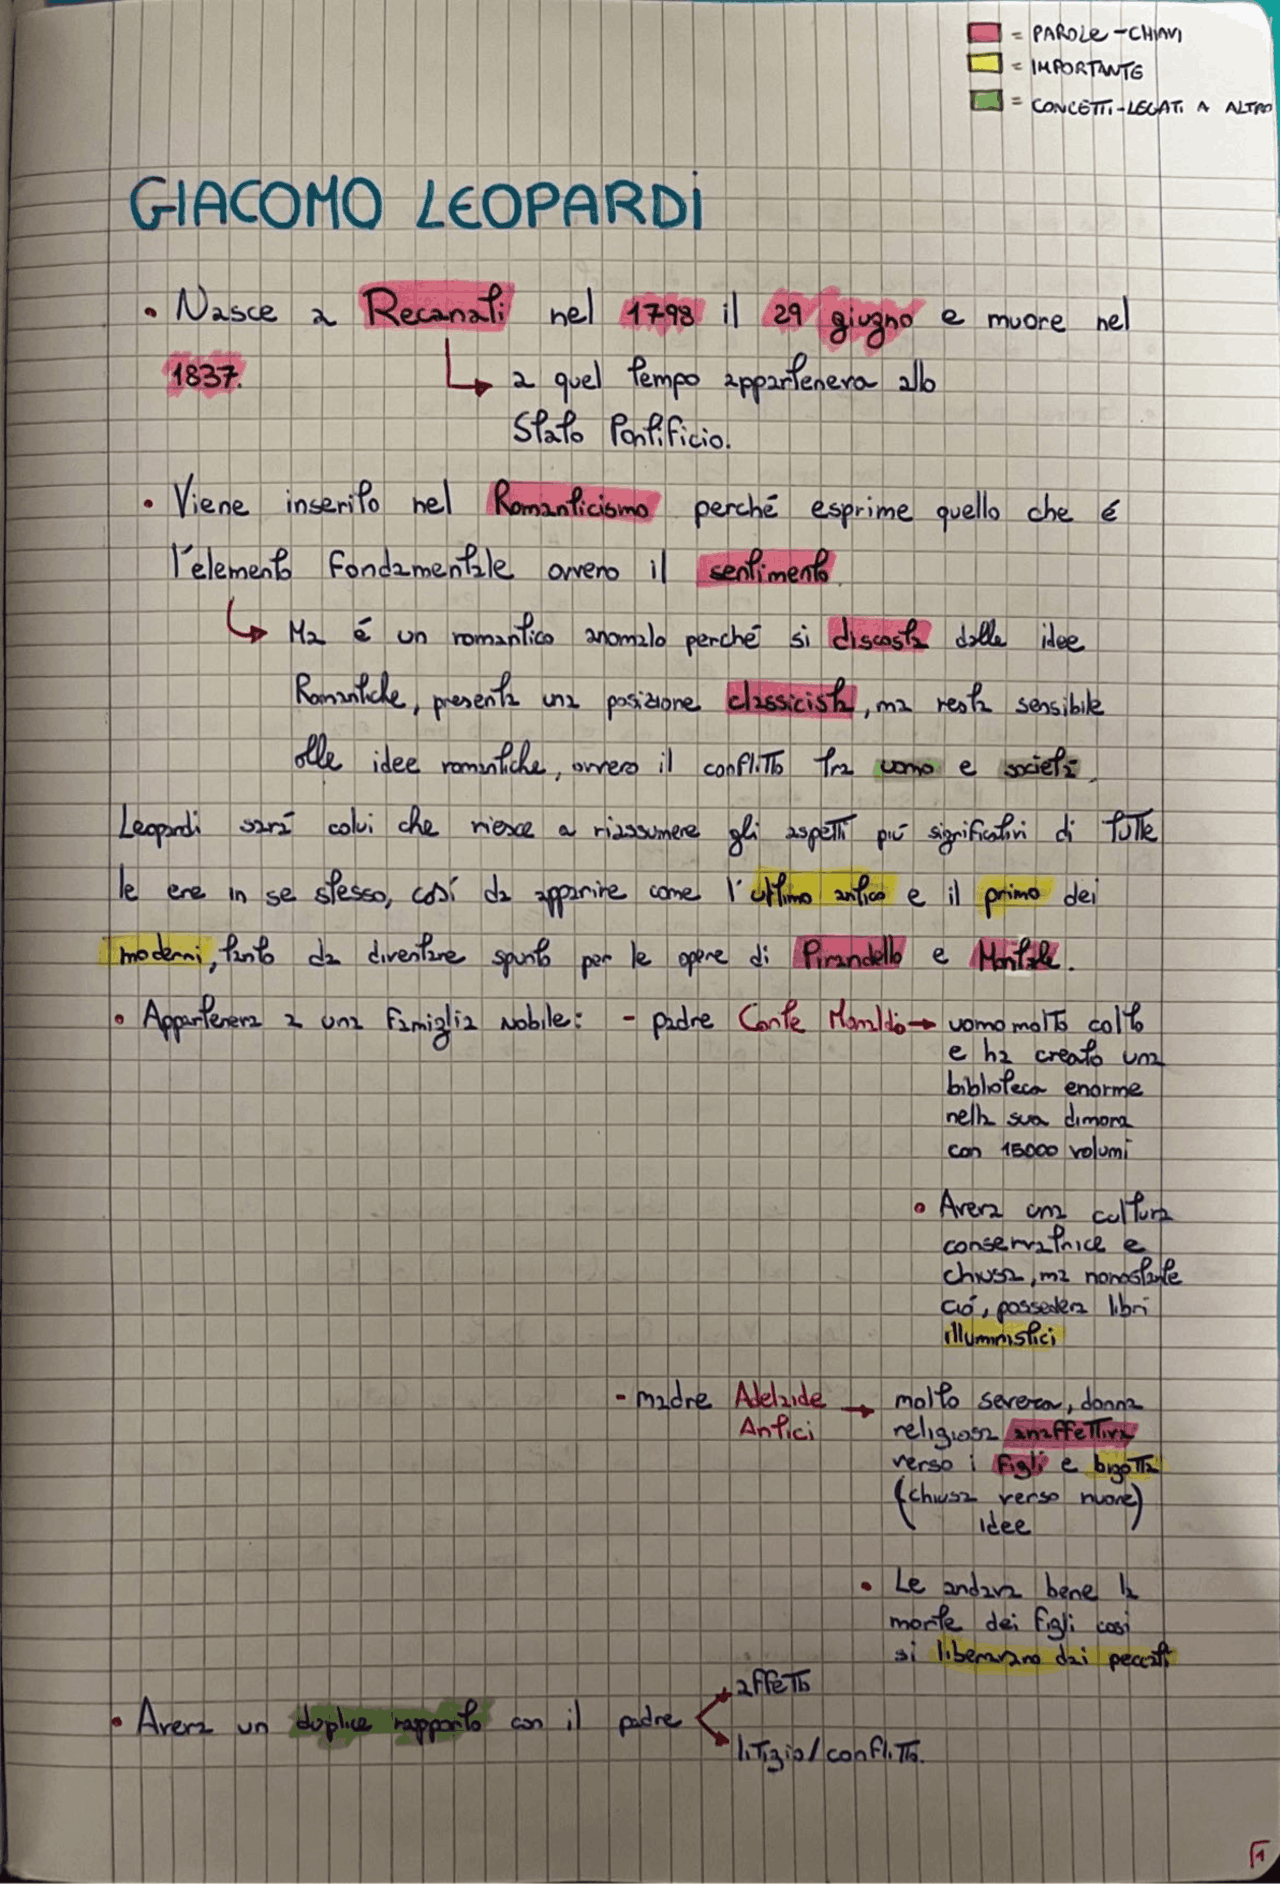 = PAROLE-CHIAVI
= IMPORTANTE
= CONCETTI-LEGATI A ALTRO
GIACOMO LEOPARDI
• Nasce a Recanati nel 1798 il 29 giugno e muore nel
1837.
a quel tempo apparteneva allo
Stato Pontificio.
• Viene inserito nel Romanticismo perché esprime quello che é
l'elemento fondamentale ovvero il sentimento.
Ma é un romantico anomalo perché si discosta dalle idee
Romantiche, presenta una posizione classicista, ma resta sensibile
alle idee romantiche, ovvero il conflitto tra uomo e società.
Leopardi sará colui che riesce a riassumere gli aspetti piú significativi di tutte
le ere in se stesso, cosí da apparire come l'ultimo antico e il primo dei
moderni, tanto da diventare spunto per le opere di Pirandello e Montale.
• Apparteneva a una famiglia nobile: - padre Conte Monaldo → uomo molto colto
e ha creato una
biblioteca enorme
nella sua dimora
con 15000 volumi
• Aveva una cultura
conservatrice e
chiusa, ma nonostante
ció, possedeva libri
illuministici
- madre Adelaide → molto severa, donna
Antici religiosa anaffettiva
verso i figli e bigotta
(chiusa verso nuove)
idee
• Le andava bene la
morte dei figli cosi
si liberavano dai peccati
affetto
• Aveva un duplice rapporto con il padre
litigio/conflitto.
1